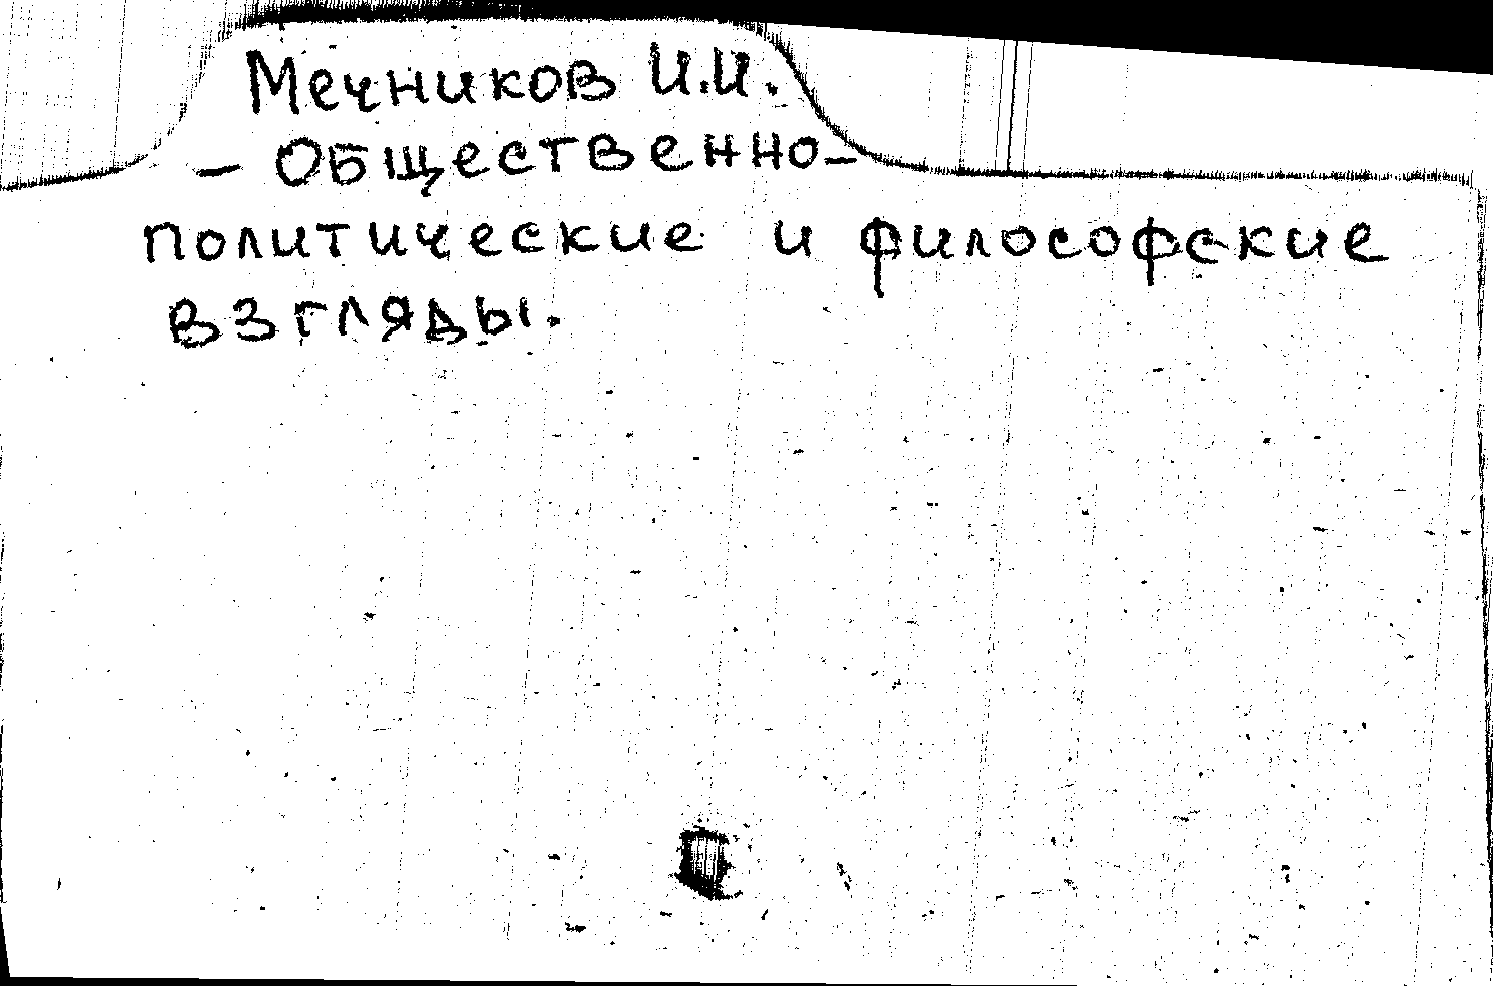 Мечников И.И.
- Общественно-
политические и философские
взгляды.